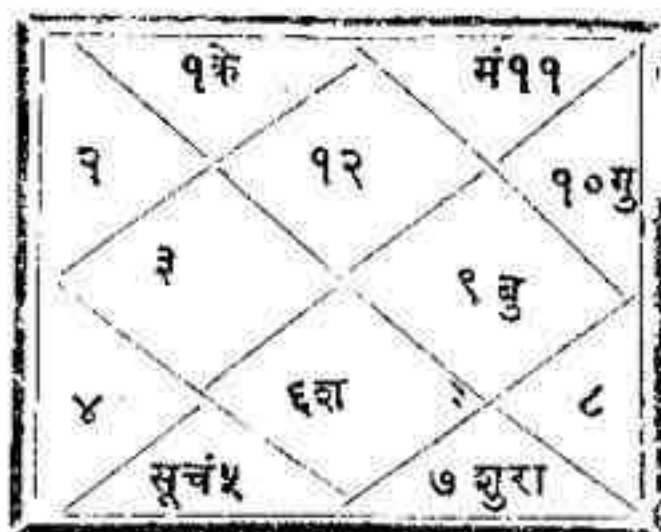 १के मं११
२ १२ १०गु
३ ९ बु
४ ६श ८
सूचं५ ७ शुरा